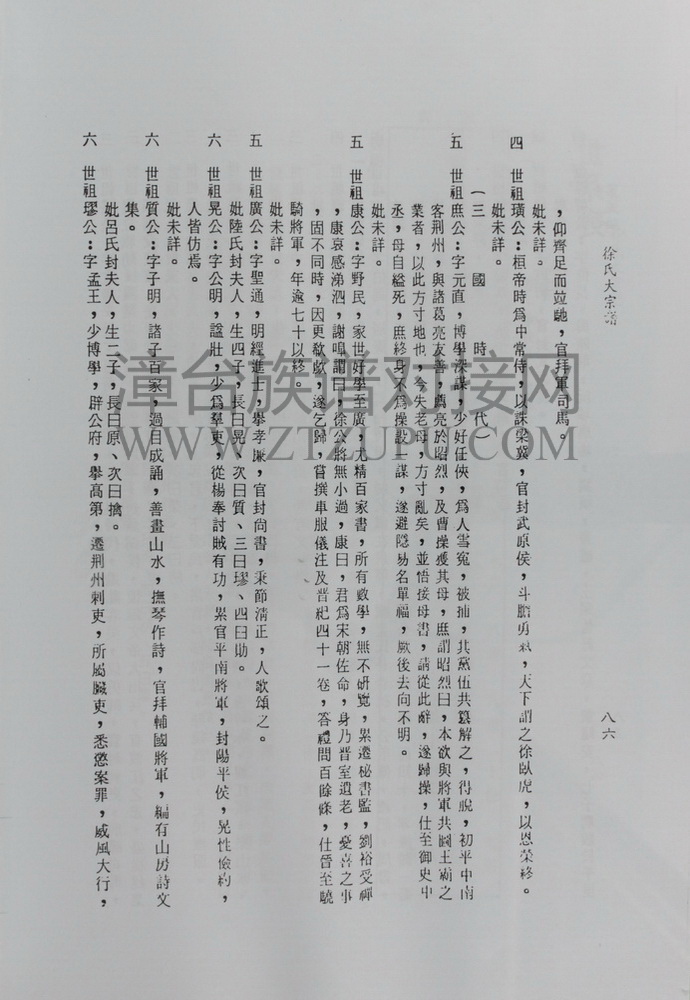 徐氏大宗譜
八六
，仰齊足而竝馳，官拜軍司馬。
妣未詳。
四　世祖璜公：桓帝時爲中常侍，以誅梁冀，官封武原侯，斗膽勇氣，天下謂之徐臥虎，以恩榮終。
妣未詳。
（三　國　時　代）
五　世祖庶公：字元直，博學深謀，少好任俠，爲人雪冤，被捕，其黨伍共篡解之，得脫，初平中南
客荆州，與諸葛亮友善，薦亮於昭烈，及曹操獲其母，庶謂昭烈曰，本欲與將軍共圖王霸之
業者，以此方寸地也，今失老母，方寸亂矣，並悟接母書，請從此辭，遂歸操，仕至御史中
丞，母自縊死，庶終身不爲操設一謀，遂避隱易名單福，厥後去向不明。
妣未詳。
五　世祖康公：字野民，家世好學至廣，尤精百家書，所有數學，無不研覽，累遷秘書監，劉裕受禪
，康哀感涕泗，謝鳴謂曰，徐公將無小過，康曰，君爲宋朝佐命，身乃晋室遺老，憂喜之事
，固不同時，因更歔欷，遂乞歸，嘗撰車服儀注及晋祀四十一卷，答禮問百餘條，仕晉至驍
騎將軍，年逾七十以終。
妣未詳。
五　世祖廣公：字聖通，明經進士，擧孝廉，官封尚書，秉節清正，人歌頌之。
妣陸氏封夫人，生四子，長曰晃、次曰質、三曰璆、四曰勛。
六　世祖晃公：字公明，諡壯，少爲羣吏，從楊奉討賊有功，累官平南將軍，封陽平侯，晃性儉約，
人皆仿焉。
妣未詳。
六　世祖質公：字子明，諸子百家，過目成誦，善畫山水，撫琴作詩，官拜輔國將軍，編有山房詩文
集。
妣呂氏封夫人，生二子，長曰原、次曰擒。
六　世祖璆公：字孟王，少博學，辟公府，擧高第，遷荆州刺吏，所屬贓吏，悉懲案罪，威風大行，
漳台族谱对接网
WWW.ZTZUPU.COM